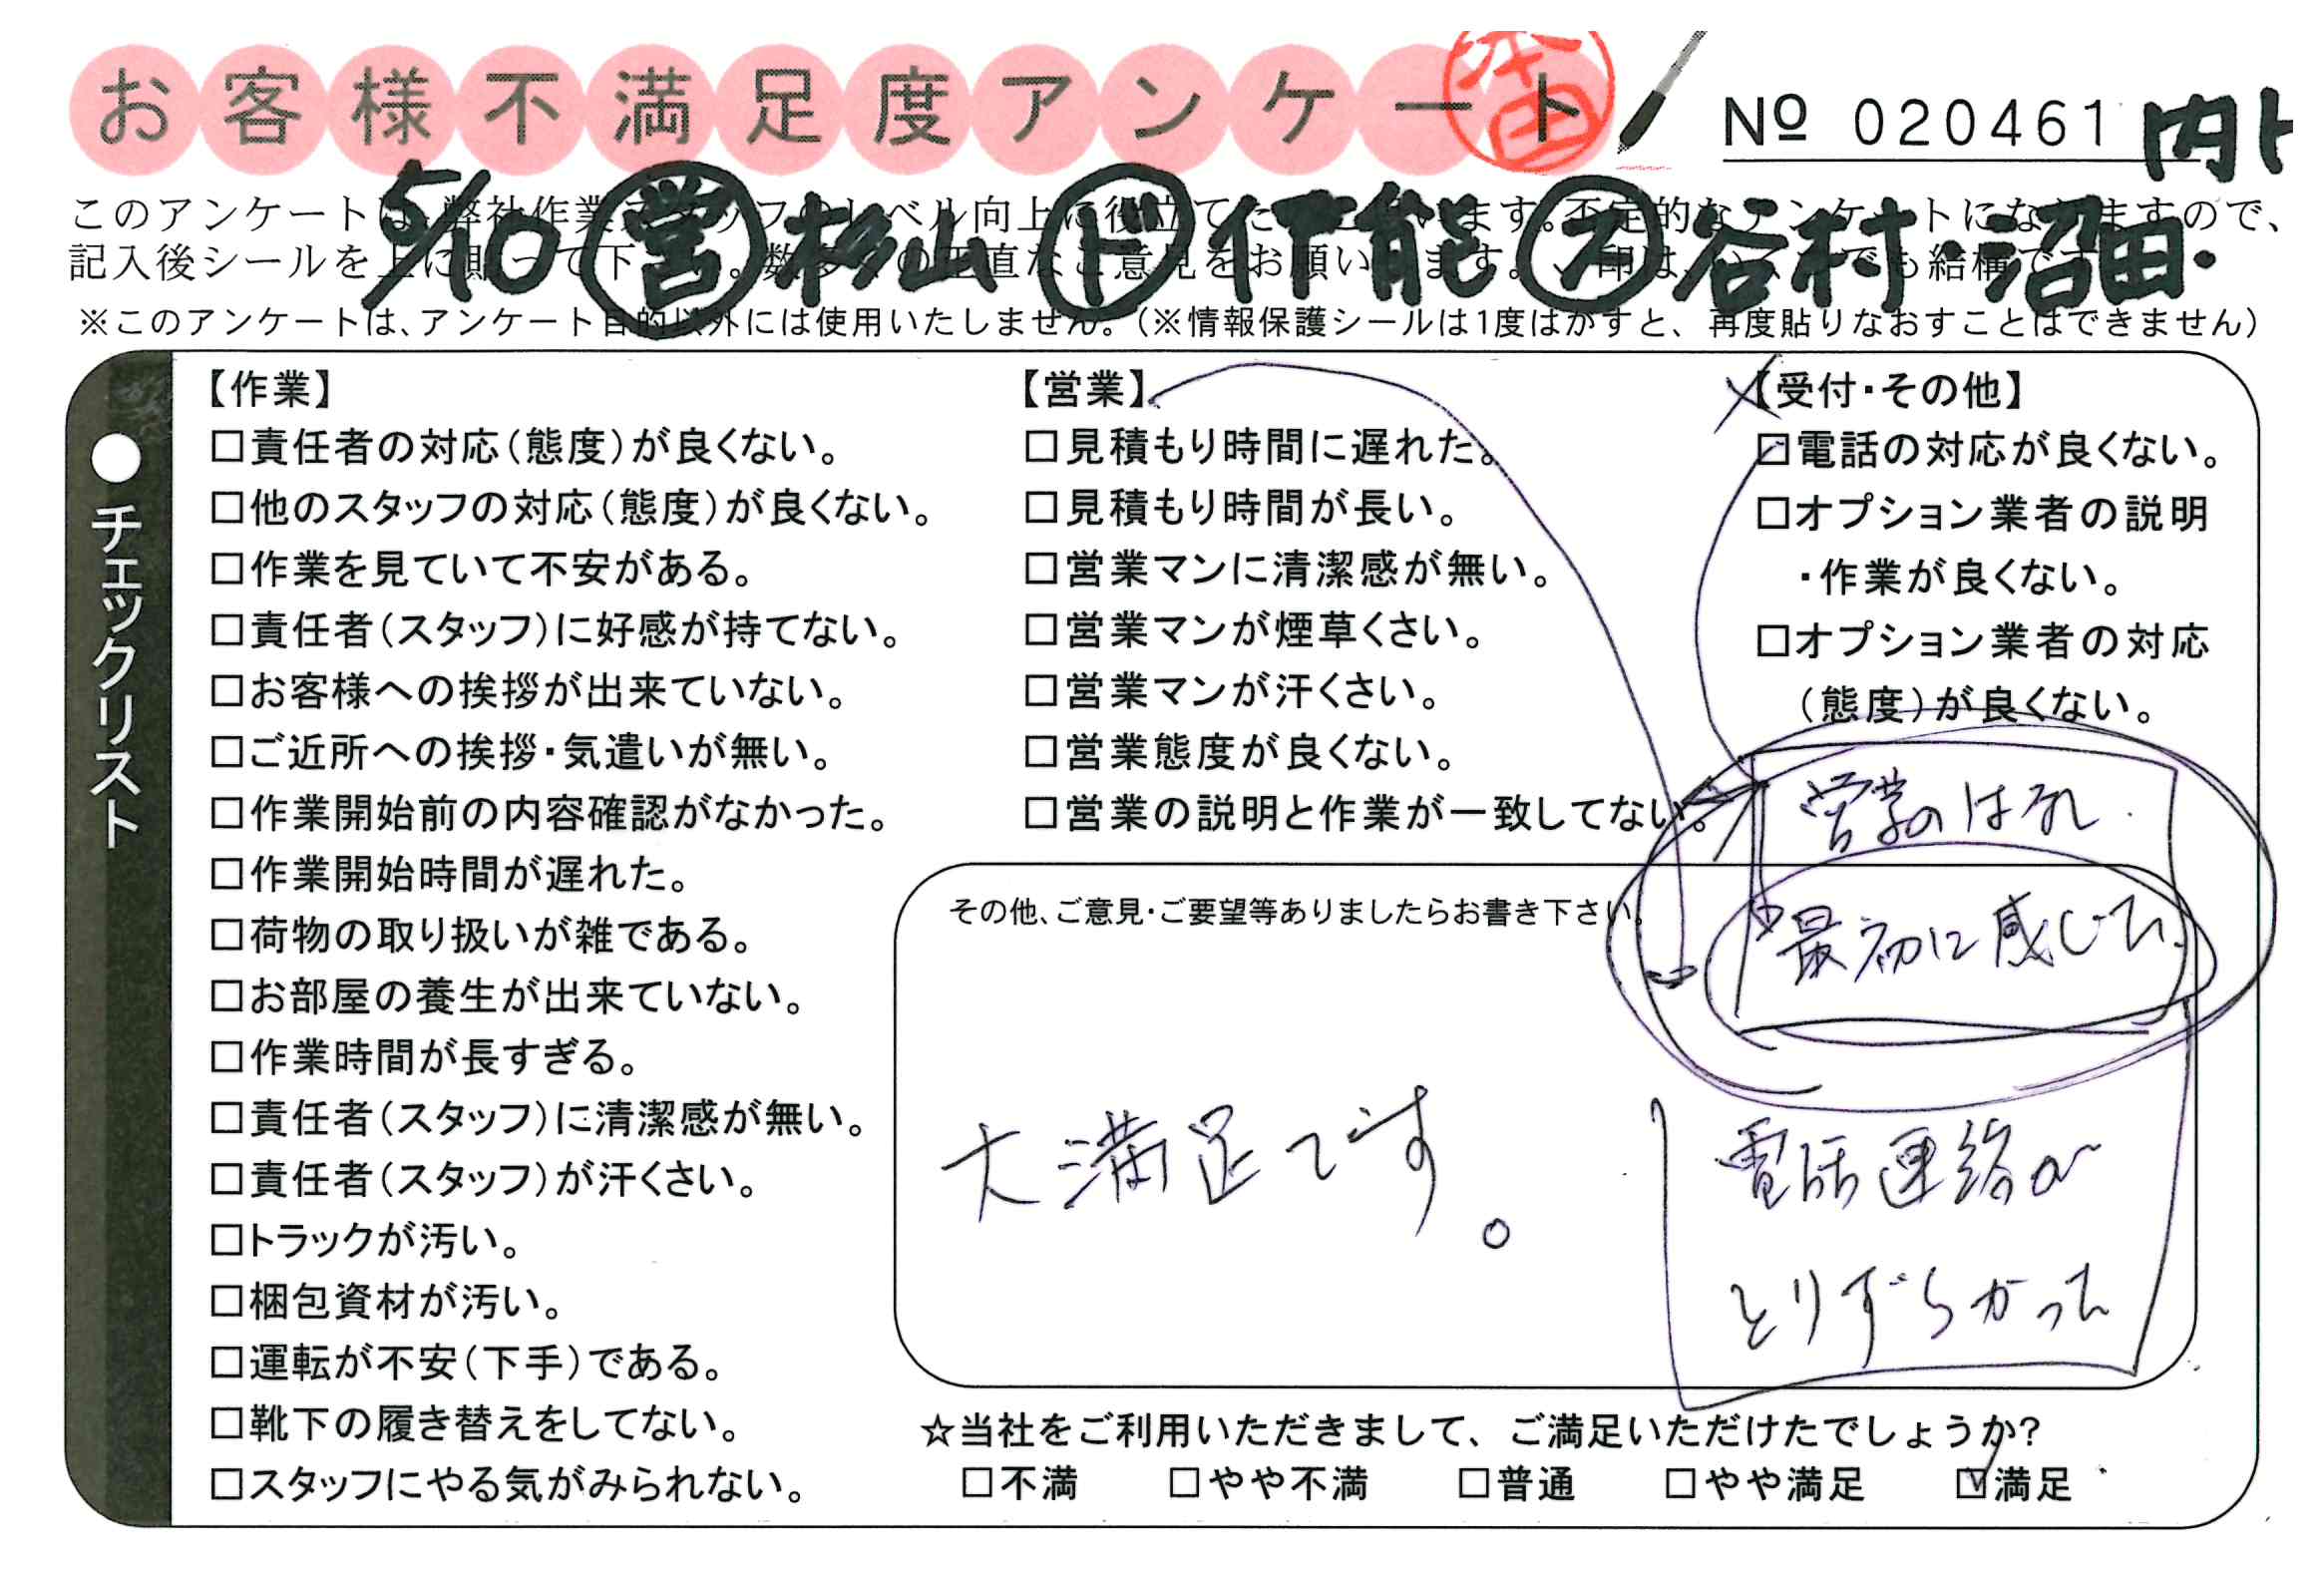 お客様不満足度アンケート
№ 020461
5/10 営 杉山 ド 作能 ス 谷村・沼田・
このアンケートは、弊社作業スタッフのレベル向上に役立てたいと思います。不定的なアンケートになりますので、
記入後シールを上に貼って下さい。数多くの正直なご意見をお願いします。
※このアンケートは、アンケート目的以外には使用いたしません。(※情報保護シールは1度はがすと、再度貼りなおすことはできません)
●チェックリスト
【作業】
□責任者の対応(態度)が良くない。
□他のスタッフの対応(態度)が良くない。
□作業を見ていて不安がある。
□責任者(スタッフ)に好感が持てない。
□お客様への挨拶が出来ていない。
□ご近所への挨拶・気遣いが無い。
□作業開始前の内容確認がなかった。
□作業開始時間が遅れた。
□荷物の取り扱いが雑である。
□お部屋の養生が出来ていない。
□作業時間が長すぎる。
□責任者(スタッフ)に清潔感が無い。
□責任者(スタッフ)が汗くさい。
□トラックが汚い。
□梱包資材が汚い。
□運転が不安(下手)である。
□靴下の履き替えをしてない。
□スタッフにやる気がみられない。
【営業】
□見積もり時間に遅れた。
□見積もり時間が長い。
□営業マンに清潔感が無い。
□営業マンが煙草くさい。
□営業マンが汗くさい。
□営業態度が良くない。
□営業の説明と作業が一致してない。
【受付・その他】
□電話の対応が良くない。
□オプション業者の説明
・作業が良くない。
□オプション業者の対応
(態度)が良くない。
営業の
最初に感じた
その他、ご意見・ご要望等ありましたらお書き下さい。
大満足です。
電話連絡が
とりずらかった
☆当社をご利用いただきまして、ご満足いただけたでしょうか?
□不満 □やや不満 □普通 □やや満足 ☑満足